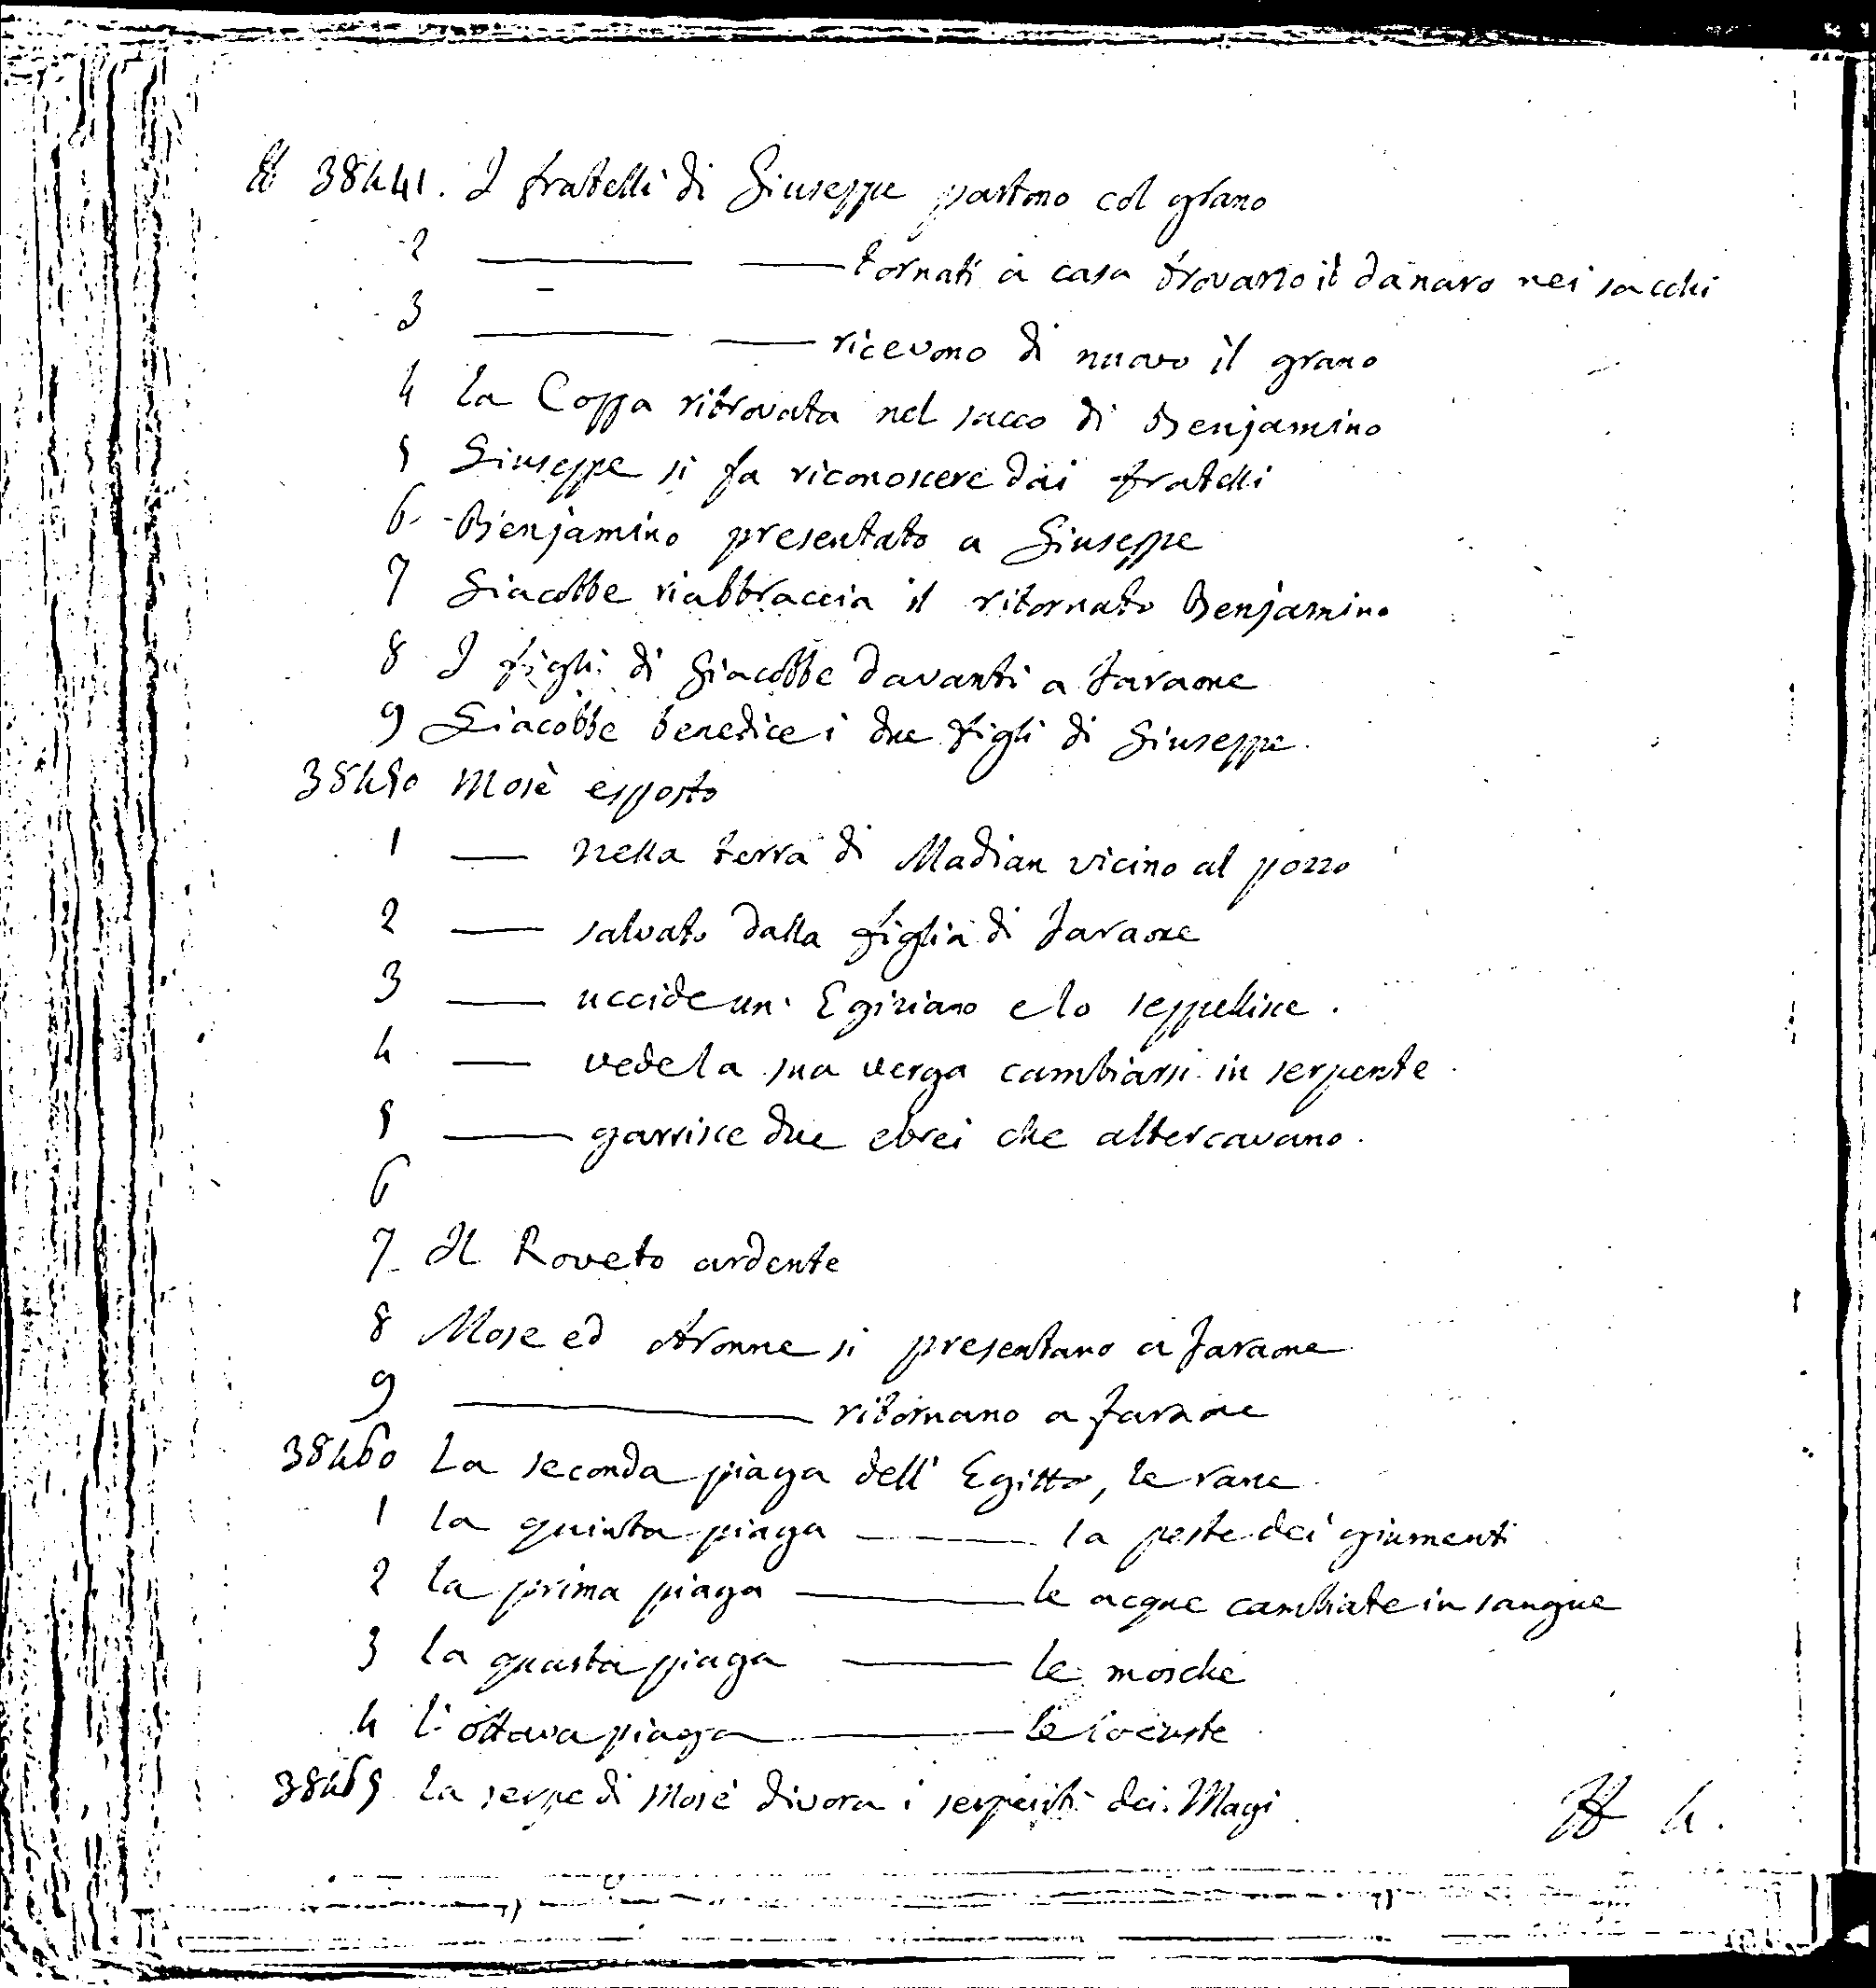 38441. I fratelli di Giuseppe partono col grano
2 ——— —— tornati a casa trovano il danaro nei sacchi
3 ——— —— ricevono di nuovo il grano
4 la Coppa ritrovata nel sacco di Benjamino
5 Giuseppe si fa riconoscere dai fratelli
6 Benjamino presentato a Giuseppe
7 Giacobbe riabbraccia il ritornato Benjamino
8 I figli di Giacobbe davanti a Faraone
9 Giacobbe benedice i due figli di Giuseppe.
38450 Mosè esposto
1 —— nella terra di Madian vicino al pozzo
2 —— salvato dalla figlia di Faraone
3 —— uccide un Egiziano e lo seppellisce.
4 —— vede la sua verga cambiarsi in serpente
5 —— garrisce due ebrei che altercavano.
6
7 Il Roveto ardente
8 Mose ed Aronne si presentano a Faraone
9 ———— ritornano a Faraone
38460 La seconda piaga dell' Egitto, le rane
1 la quinta piaga ——— la peste dei giumenti
2 la prima piaga ——— le acque cambiate in sangue
3 la quarta piaga ——— le mosche
4 l'ottava piaga ——— le locuste
38465 la serpe di Mosè divora i serpenti dei Magi
4.